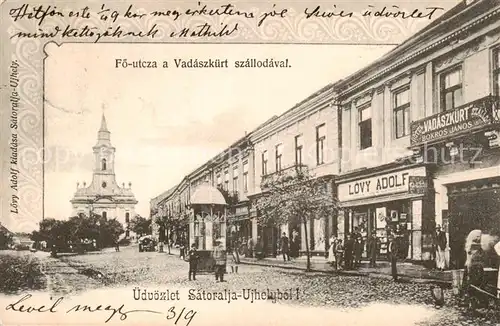 Hétfőn este 1/4 9 kor megérkeztem jól. Szíves üdvözlet
mindkettőjüknek Mathild
Fő-utcza a Vadászkürt szállodával.
Lövy Adolf kiadása Sátoralja-Ujhely.
VADÁSZKÜRT
BOKROS JÁNOS
LÖVY ADOLF
Üdvözlet Sátoralja-Ujhelyből!
Level megy 3/9